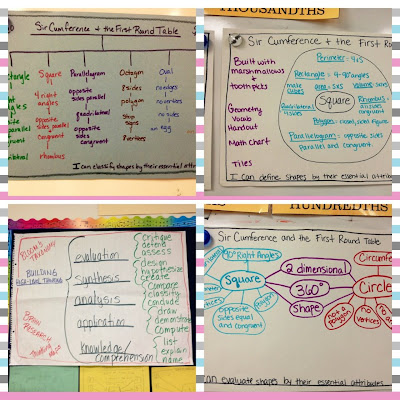 Sir Cumference + the First Round Table
Square
4 right angles
opposite sides parallel
congruent
rhombus
Parallelogram
opposite sides parallel
quadrilateral
opposite sides congruent
Octagon
8 sides
polygon
stop signs
Oval
no edges
no vertices
no sides
an egg
I can classify shapes by their essential attributes
THOUSANDTHS
Sir Cumference + the First Ro
Built with
marshmallows
toothpicks
Geometry
Vocab
Handout
Math Chart
Tiles
Perimeter = 4xS
Rectangle = 4-90° angles
make cubes
area = sxs
volume = sxsxs
Quadrilateral
4 sides
Square
Rhombus =
all sides
congruent
Polygon = closed, sided figure
Parallelogram = opposite sides
parallel and congruent
I can define shapes by their essential attri
BLOOM'S TAXONOMY
BUILDING
HIGHER-LEVEL THINKING
BRAIN RESEARCH
Thinking Maps
evaluation
synthesis
analysis
application
knowledge/
comprehension
critique
defend
assess
design
hypothesize
create
compare
classify
conclude
draw
demonstrate
compute
list
explain
name
HUNDREDTHS
Sir Cumference and the First Round Table
90° Right Angles
Square
vertices
Opposite
sides equal and
congruent
polygon
2 dimensional
360°
Shape
Circumfe
Circle
not a
polygon
no
vertices
no
can evaluate shapes by their essential attributes